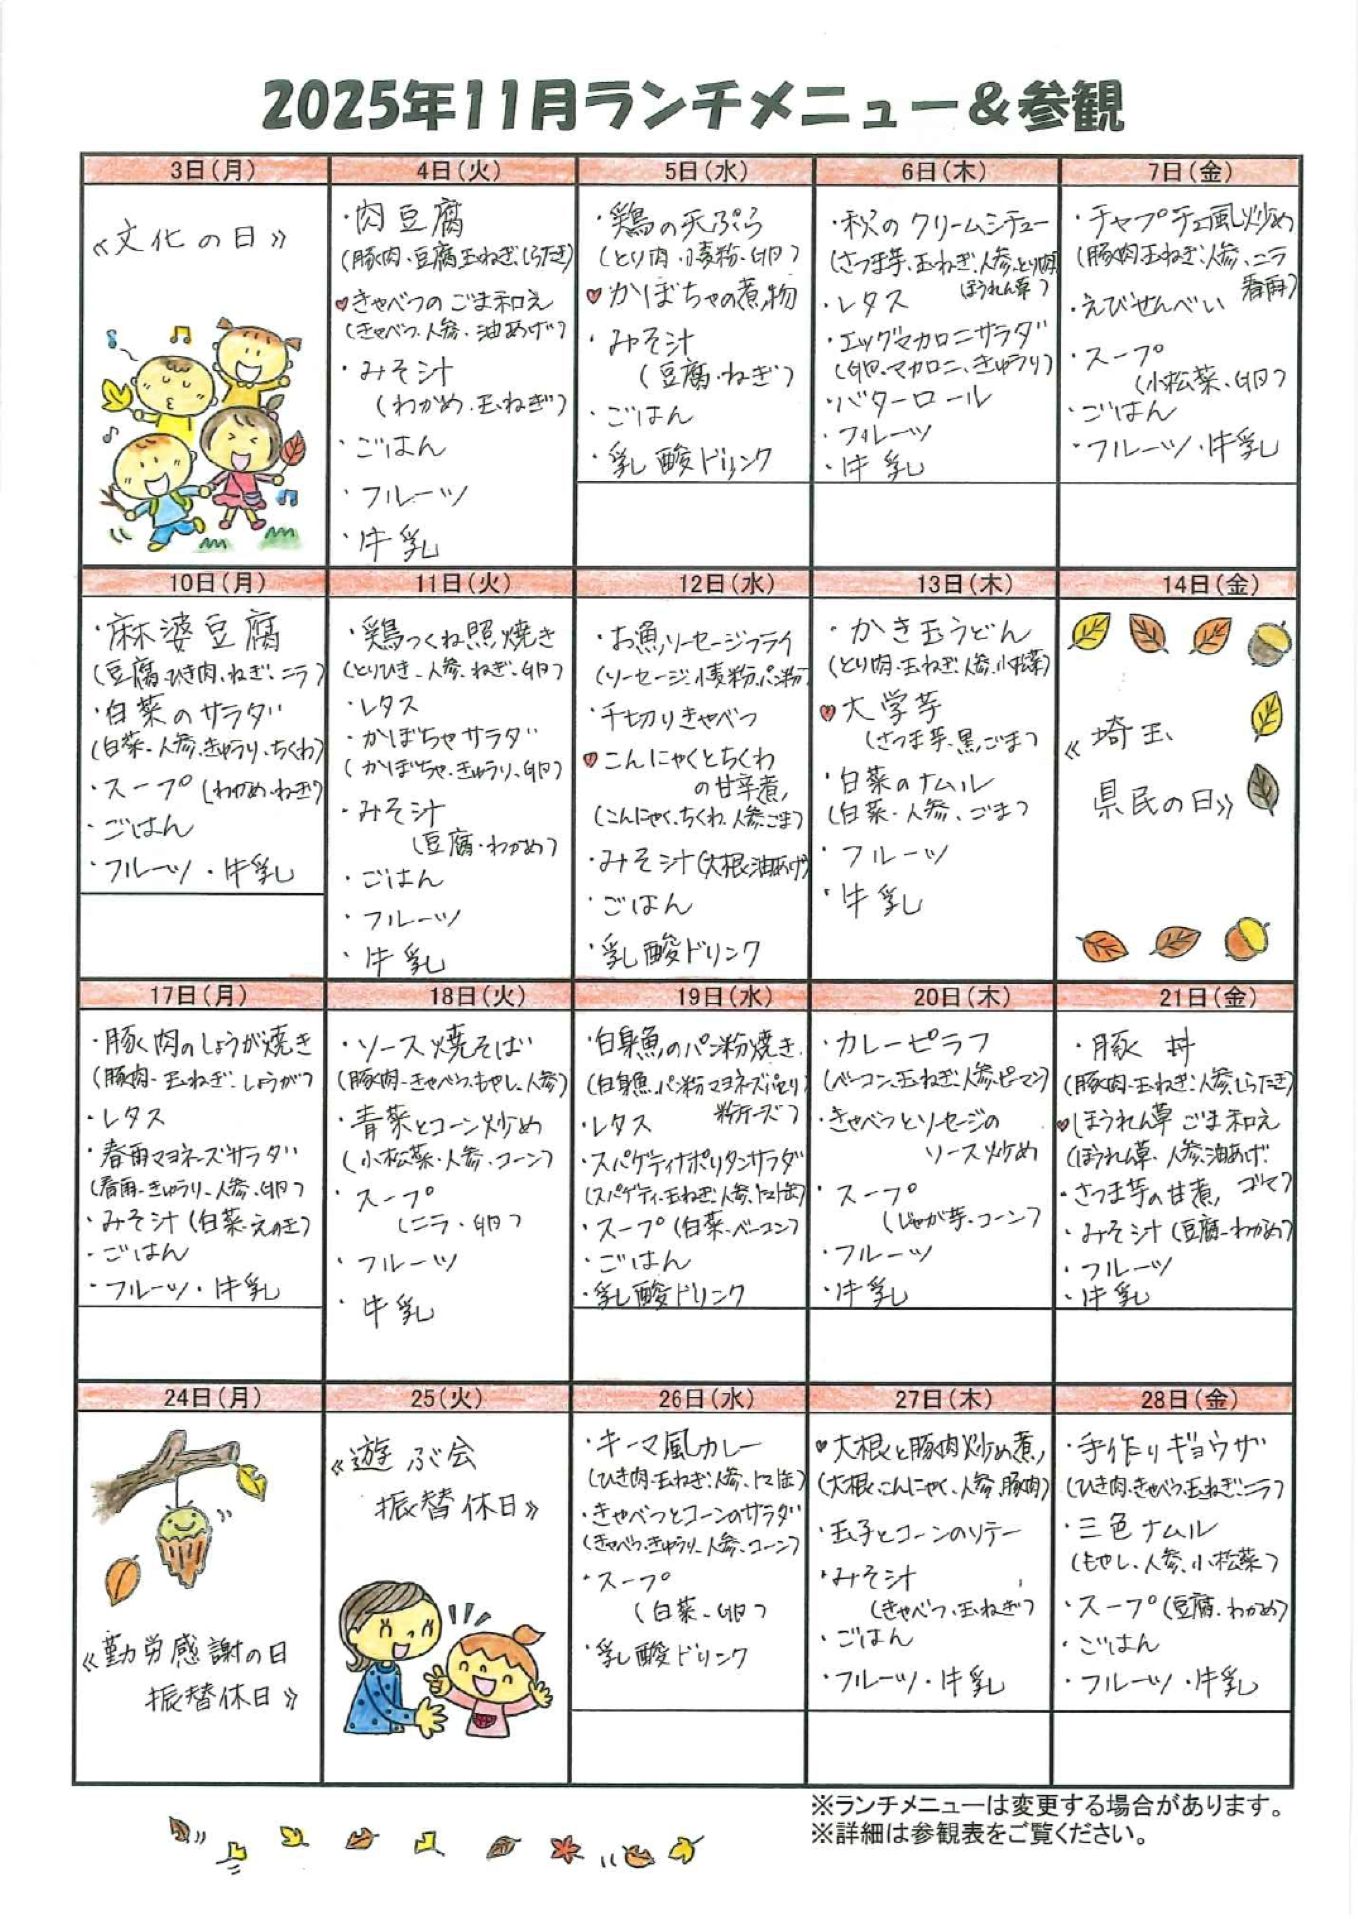 2025年11月ランチメニュー＆参観
3日(月)
《文化の日》
4日(火)
・肉豆腐
(豚肉・豆腐、玉ねぎ、しらたき)
♥きゃべつのごま和え
(きゃべつ、人参、油あげ)
・みそ汁
(わかめ、玉ねぎ)
・ごはん
・フルーツ
・牛乳
5日(水)
・鶏の天ぷら
(とり肉・小麦粉・卵)
♥かぼちゃの煮物
・みそ汁
(豆腐・ねぎ)
・ごはん
・乳酸ドリンク
6日(木)
・秋のクリームシチュー
(さつま芋、玉ねぎ、人参、とり肉
ほうれん草)
・レタス
・エッグマカロニサラダ
(卵、マカロニ、きゅうり)
・バターロール
・フルーツ
・牛乳
7日(金)
・チャプチェ風炒め
(豚肉、玉ねぎ、人参、ニラ
春雨)
・えびせんべい
・スープ
(小松菜、卵)
・ごはん
・フルーツ・牛乳
10日(月)
・麻婆豆腐
(豆腐、ひき肉、ねぎ、ニラ)
・白菜のサラダ
(白菜、人参、きゅうり、ちくわ)
・スープ(わかめ、ねぎ)
・ごはん
・フルーツ・牛乳
11日(火)
・鶏つくね照焼き
(とりひき、人参、ねぎ、卵)
・レタス
・かぼちゃサラダ
(かぼちゃ、きゅうり、卵)
・みそ汁
(豆腐・わかめ)
・ごはん
・フルーツ
・牛乳
12日(水)
・お魚ソーセージフライ
(ソーセージ、小麦粉、パン粉)
・千切りきゃべつ
♥こんにゃくとちくわ
の甘辛煮
(こんにゃく、ちくわ、人参、ごま)
・みそ汁(大根、油あげ)
・ごはん
・乳酸ドリンク
13日(木)
・かき玉うどん
(とり肉、玉ねぎ、人参、小松菜)
♥大学芋
(さつま芋、黒ごま)
・白菜のナムル
(白菜・人参、ごま)
・フルーツ
・牛乳
14日(金)
《埼玉
県民の日》
17日(月)
・豚肉のしょうが焼き
(豚肉、玉ねぎ、しょうが)
・レタス
・春雨マヨネーズサラダ
(春雨、きゅうり、人参、卵)
・みそ汁(白菜、えのき)
・ごはん
・フルーツ・牛乳
18日(火)
・ソース焼そば
(豚肉、きゃべつ、もやし、人参)
・青菜とコーン炒め
(小松菜・人参・コーン)
・スープ
(ニラ・卵)
・フルーツ
・牛乳
19日(水)
・白身魚のパン粉焼き
(白身魚、パン粉、マヨネーズ、パセリ
粉チーズ)
・レタス
・スパゲティナポリタンサラダ
(スパゲティ、玉ねぎ、人参、トマト缶)
・スープ(白菜・ベーコン)
・ごはん
・乳酸ドリンク
20日(木)
・カレーピラフ
(ベーコン、玉ねぎ、人参、ピーマン)
・きゃべつとソーセージの
ソース炒め
・スープ
(じゃが芋・コーン)
・フルーツ
・牛乳
21日(金)
・豚丼
(豚肉、玉ねぎ、人参、しらたき)
♥ほうれん草ごま和え
(ほうれん草、人参、油あげ
ゴマ)
・さつま芋の甘煮
・みそ汁(豆腐、わかめ)
・フルーツ
・牛乳
24日(月)
《勤労感謝の日
振替休日》
25(火)
《遊ぶ会
振替休日》
26日(水)
・キーマ風カレー
(ひき肉、玉ねぎ、人参、トマト缶)
・きゃべつとコーンのサラダ
(きゃべつ、きゅうり、人参、コーン)
・スープ
(白菜、卵)
・乳酸ドリンク
27日(木)
♥大根と豚肉炒め煮
(大根、こんにゃく、人参、豚肉)
・玉子とコーンのソテー
・みそ汁
(きゃべつ、玉ねぎ)
・ごはん
・フルーツ・牛乳
28日(金)
・手作りギョウザ
(ひき肉、きゃべつ、玉ねぎ、ニラ)
・三色ナムル
(もやし、人参、小松菜)
・スープ(豆腐、わかめ)
・ごはん
・フルーツ・牛乳
※ランチメニューは変更する場合があります。
※詳細は参観表をご覧ください。